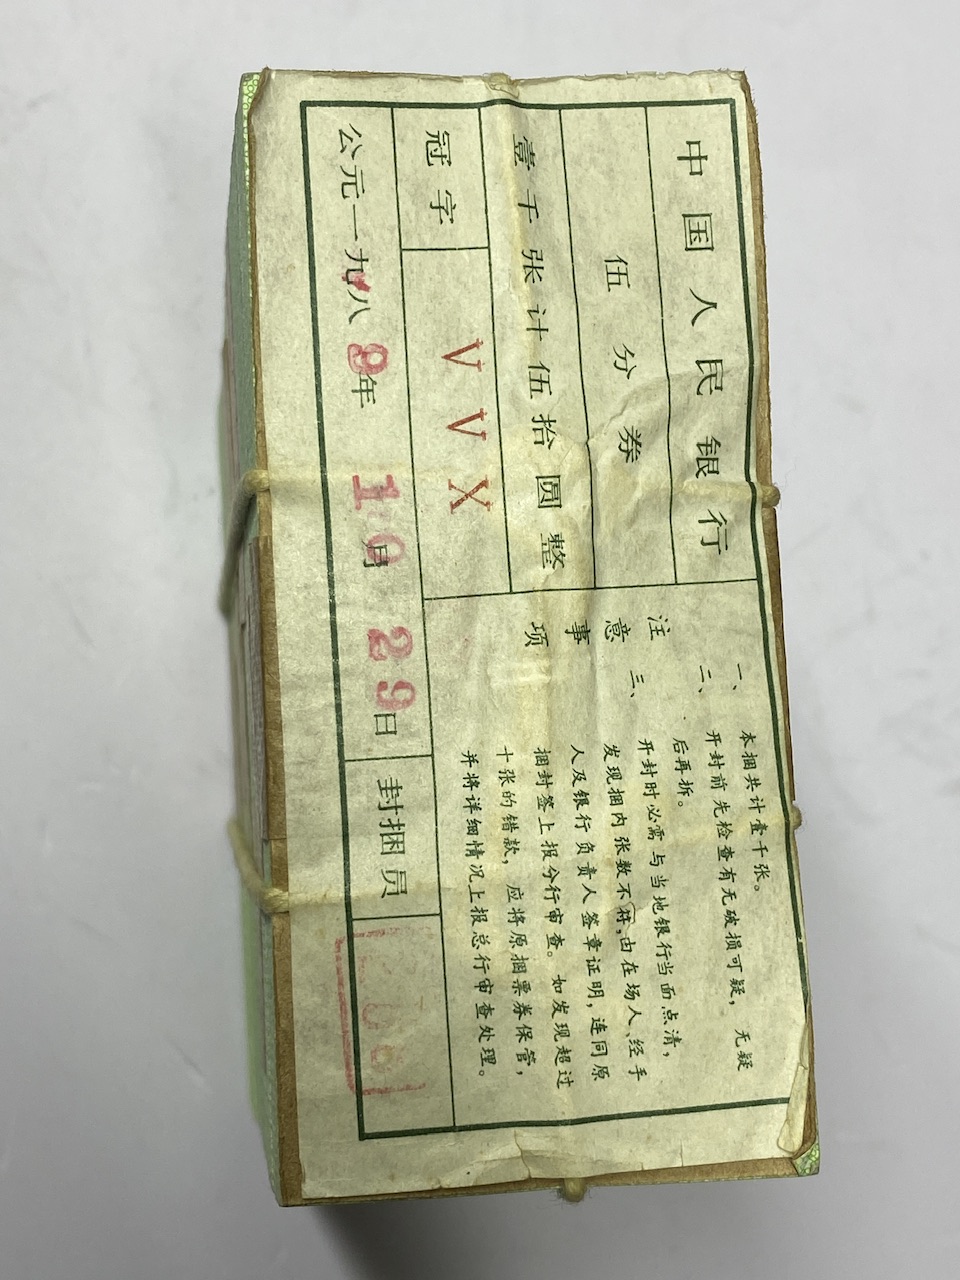 中国人民银行
伍分券
壹千张计伍拾圆整
冠字 VVX
公元一九八9年10月29日 封捆员
注意事项
一、本捆共计壹千张。
二、开封前先检查有无破损可疑，无疑
后再拆。
三、开封时必需与当地银行当面点清，
发现捆内张数不符，由在场人、经手
人及银行负责人签章证明，连同原
捆封签上报分行审查。如发现超过
十张的错款，应将原捆票券保管，
并将详细情况上报总行审查处理。